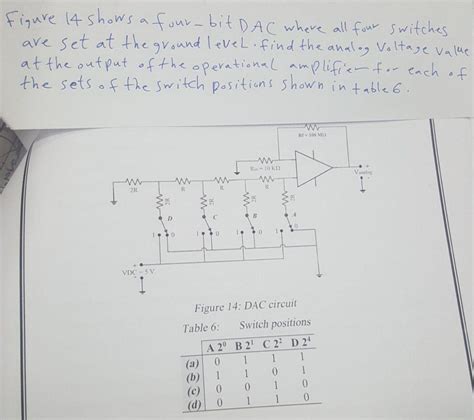 Figure 14 shows a four-bit DAC where all four switches
are set at the ground level. find the analog Voltage value
at the output of the operational amplifier for each of
the sets of the switch positions shown in table 6.
Vanalog
2R
R
R
R
2R
2R
2R
2R
D
C
B
A
1
0
1
0
1
0
1
0
VDC = 5 V
Figure 14: DAC circuit
Table 6: Switch positions
A 2⁰ B 2¹ C 2² D 2⁴
(a) 0 1 1 1
(b) 1 1 0 1
(c) 0 0 1 0
(d) 0 1 1 0